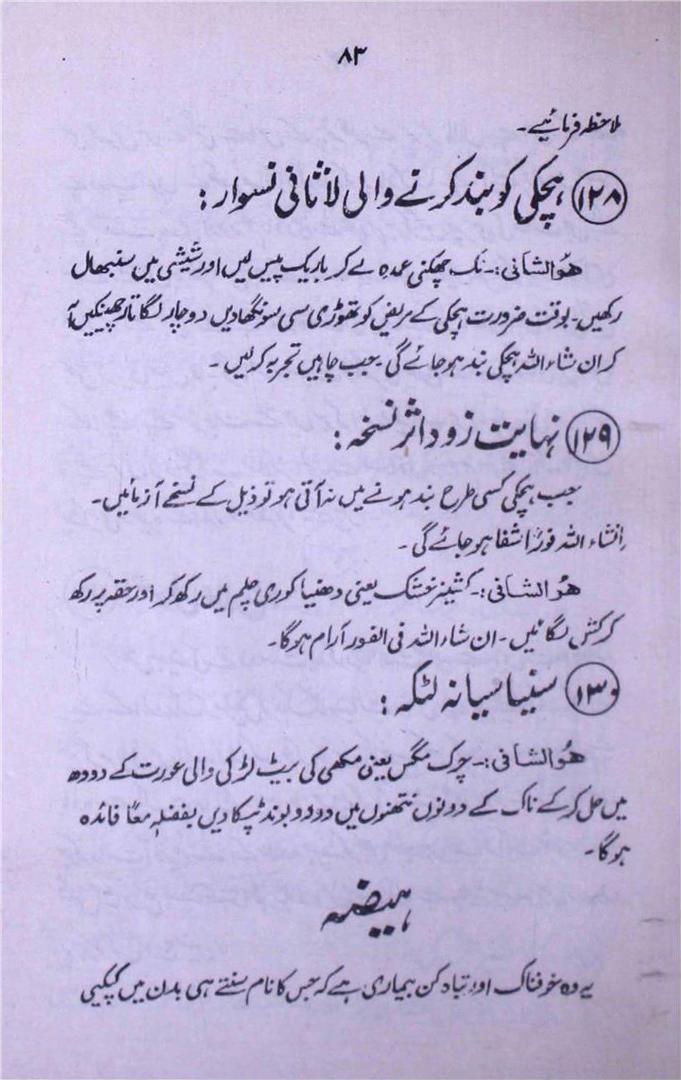 ۸۳
ملاحظہ فرمائیے۔
۱۲۸ ہچکی کو بند کرنے والی لاثانی نسوار:
ھُوالشافی:۔ نک چھکنی عمدہ لے کر باریک پیس لیں اور شیشی میں سنبھال
رکھیں۔ بوقت ضرورت ہچکی کے مریض کو تھوڑی سی سونگھا دیں دوچار لگاتار چھینکیں آ
کر ان شاءاللہ ہچکی بند ہو جائے گی۔ جب چاہیں تجربہ کرلیں۔
۱۲۹ نہایت زود اثر نسخہ:
جب ہچکی کسی طرح بند ہونے میں نہ آتی ہو تو ذیل کے نسخے آزمائیں۔
انشاء اللہ فوراً شفا ہو جائے گی۔
ھُوالشافی:۔ کشنیز خشک یعنی دھنیا کوری چلم میں رکھ کر اور حقہ پر رکھ
کر کش لگائیں۔ ان شاءاللہ فی الفور آرام ہوگا۔
۱۳۰ سنیاسیانہ لٹکہ:
ھُوالشافی:۔ چرک مگس یعنی مکھی کی بیٹ لڑکی والی عورت کے دودھ
میں حل کر کے ناک کے دونوں نتھنوں میں دو دو بوند ٹپکا دیں بفضلہٖ معاً فائدہ
ہوگا۔
ہیضہ
یہ وہ خوفناک اور تباہ کن بیماری ہے کہ جس کا نام سنتے ہی بدن میں کپکپی